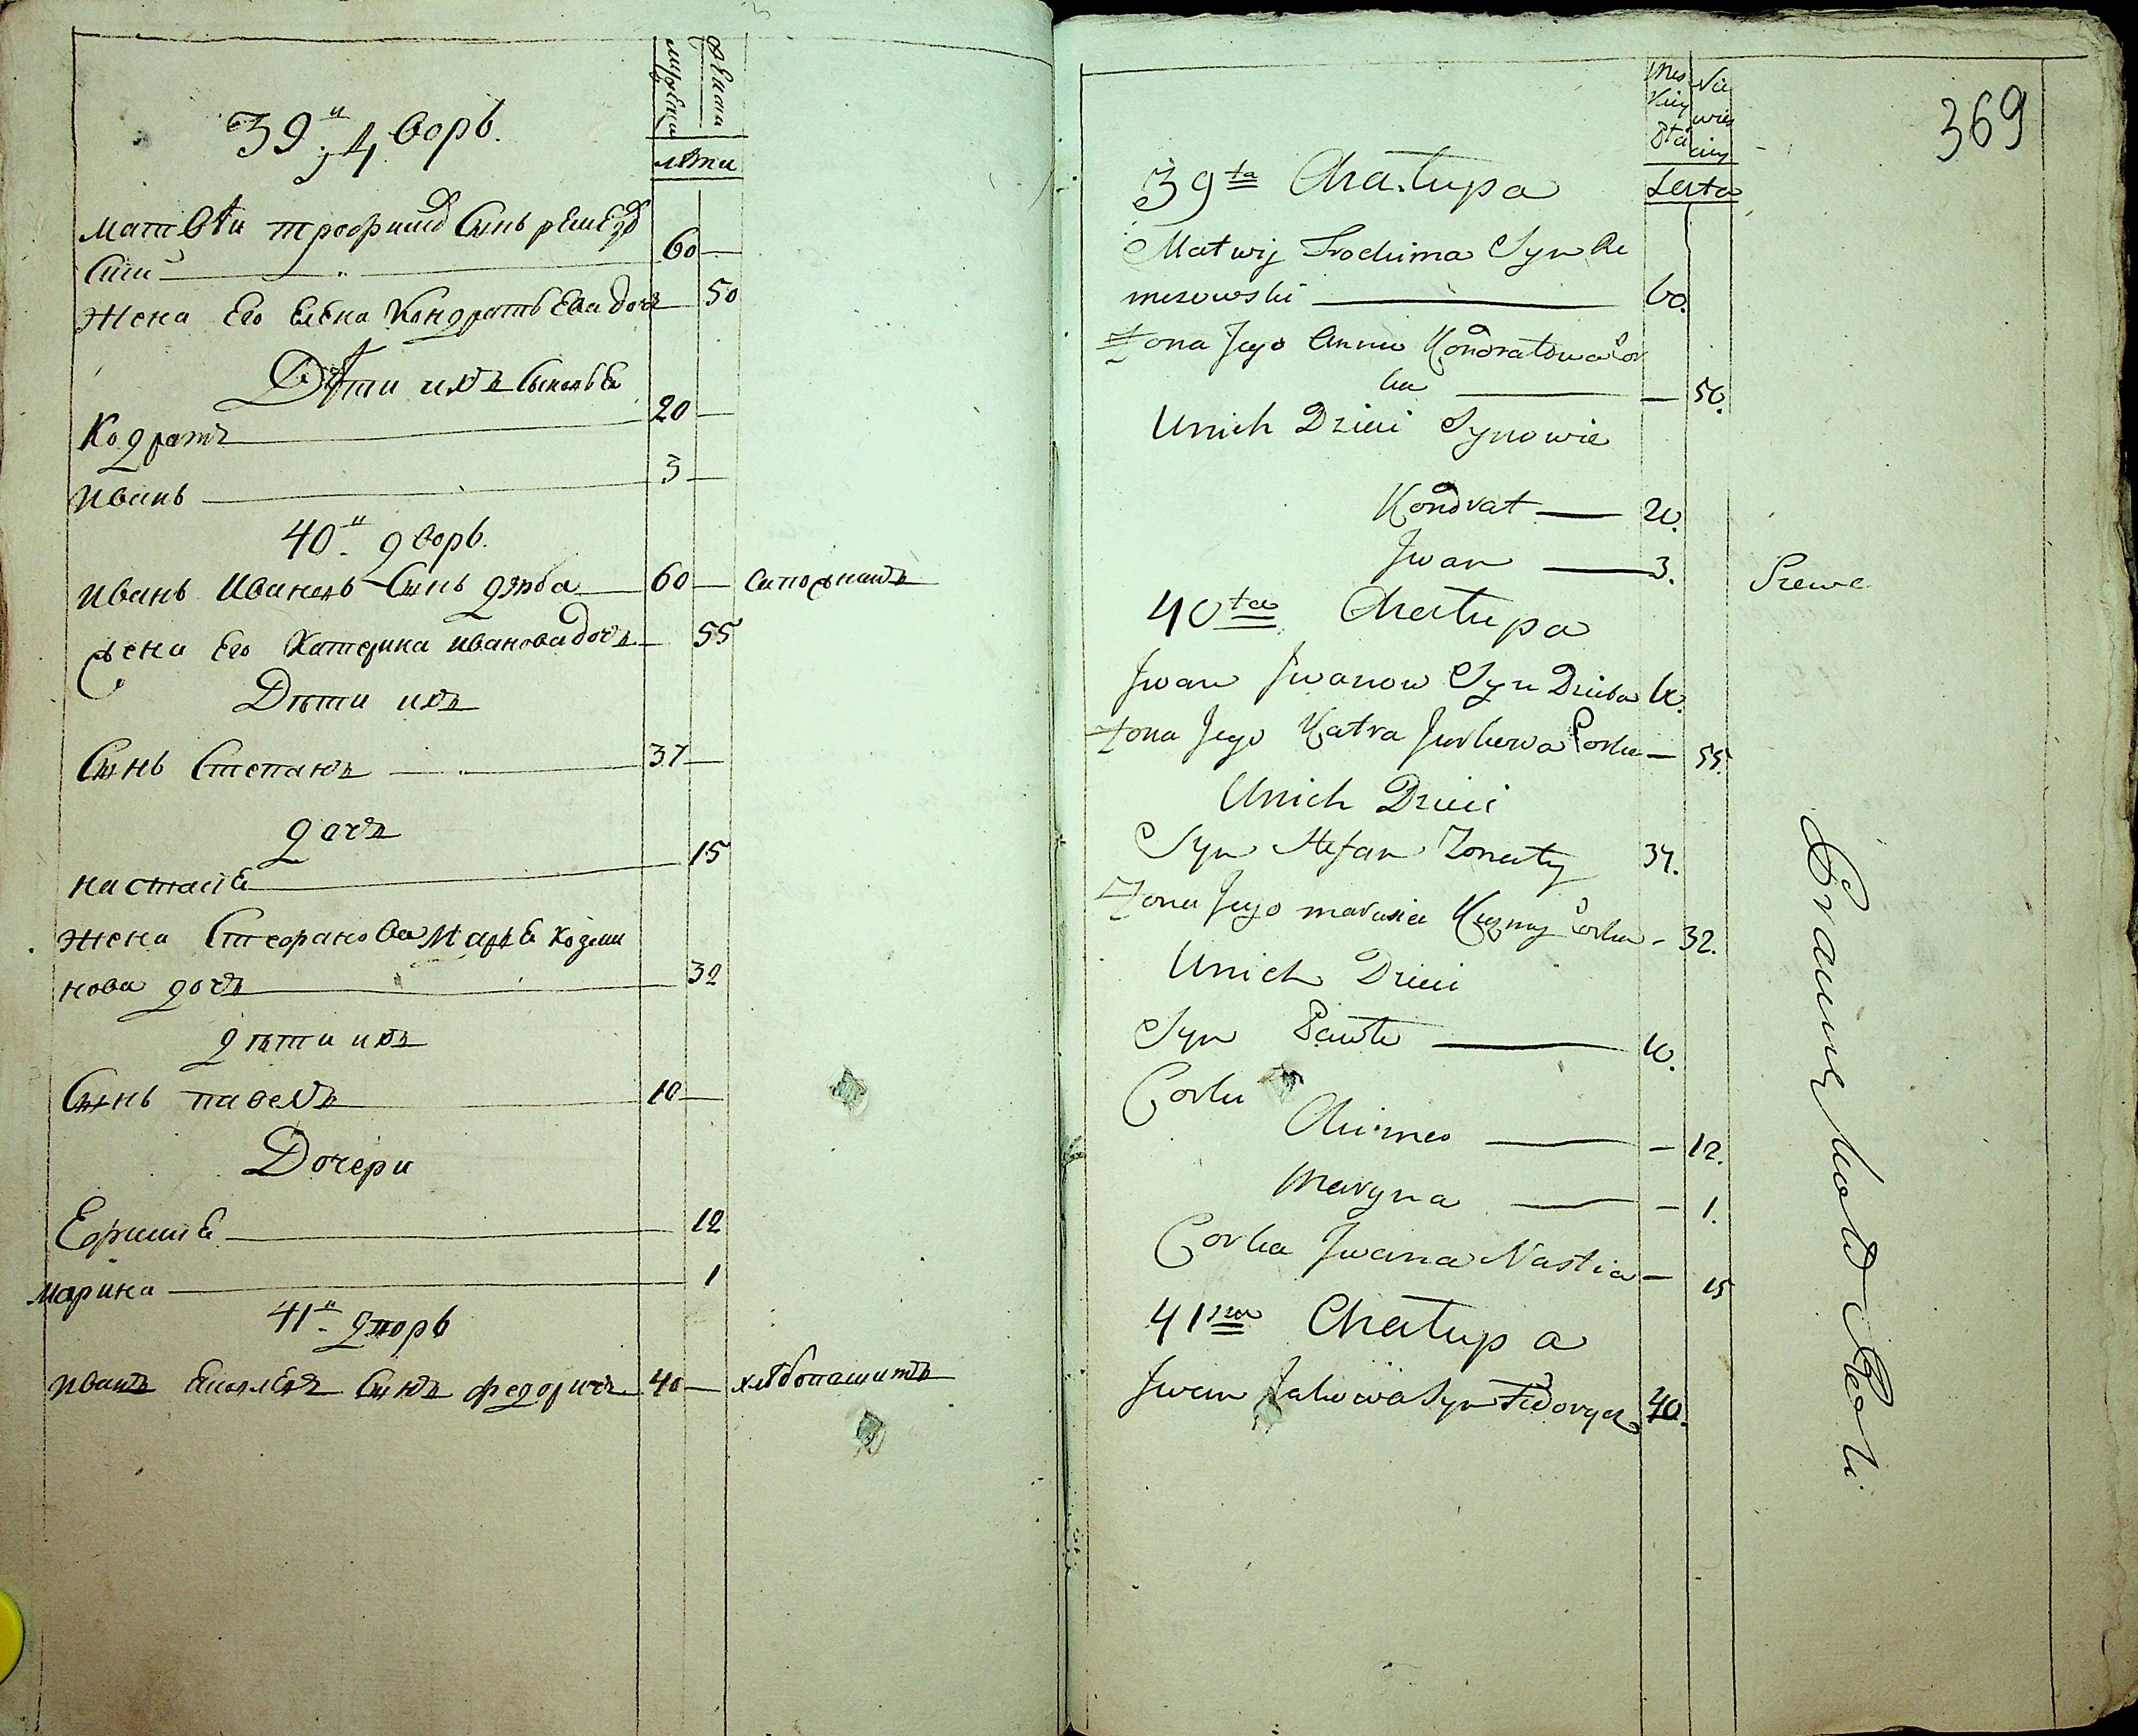 мужеска
женска
лѣта
39й дворъ.
Матвѣи трофимовъ Сынъ
60
Жена Его Елена Кондратьева дочь 50
Дѣти ихъ Сыновья
Кодратъ 20
Иванъ 3
40й дворъ.
Иванъ Ивановъ Сынъ дзюба 60 Сапожникъ
жена Его Катерина Иванова дочь 55
Дѣти ихъ
Сынъ Степанъ 37
дочь
настасія 15
Жена Стефанова Марья Козми
нова дочь 32
дѣти ихъ
Сынъ павелъ 10
Дочери
Ефимія 12
Марина 1
41й дворъ
Иванъ Сынъ федоричъ 40 хлѣбопашитъ
369
Męs Nie
kiey wies
Płci ciey
Lata
39ta Chałupa
Matwij Trochima Syn Re
mezowski 60.
Żona Jego Anna Kondratowa Cor
ka 50.
Unich Dzieci Synowie
Kondrat 20.
Jwan 3.
40ta Chałupa
Szewc
Jwan Jwanow Syn Dziuba 60.
Żona Jego Katra Jwkowa Corka 55.
Unich Dzieci
Syn Stefan Żonaty 37.
Żona Jego Marusia Kuzmy Corka 32.
Unich Dzieci
Syn Pawło 10.
Corki
Chimea 12.
Maryna 1.
Corka Jwana Nastia 15
41sza Chałupa
Jwan Jakowa Syn Fedorycz 40.
Pracuie koło Roli.